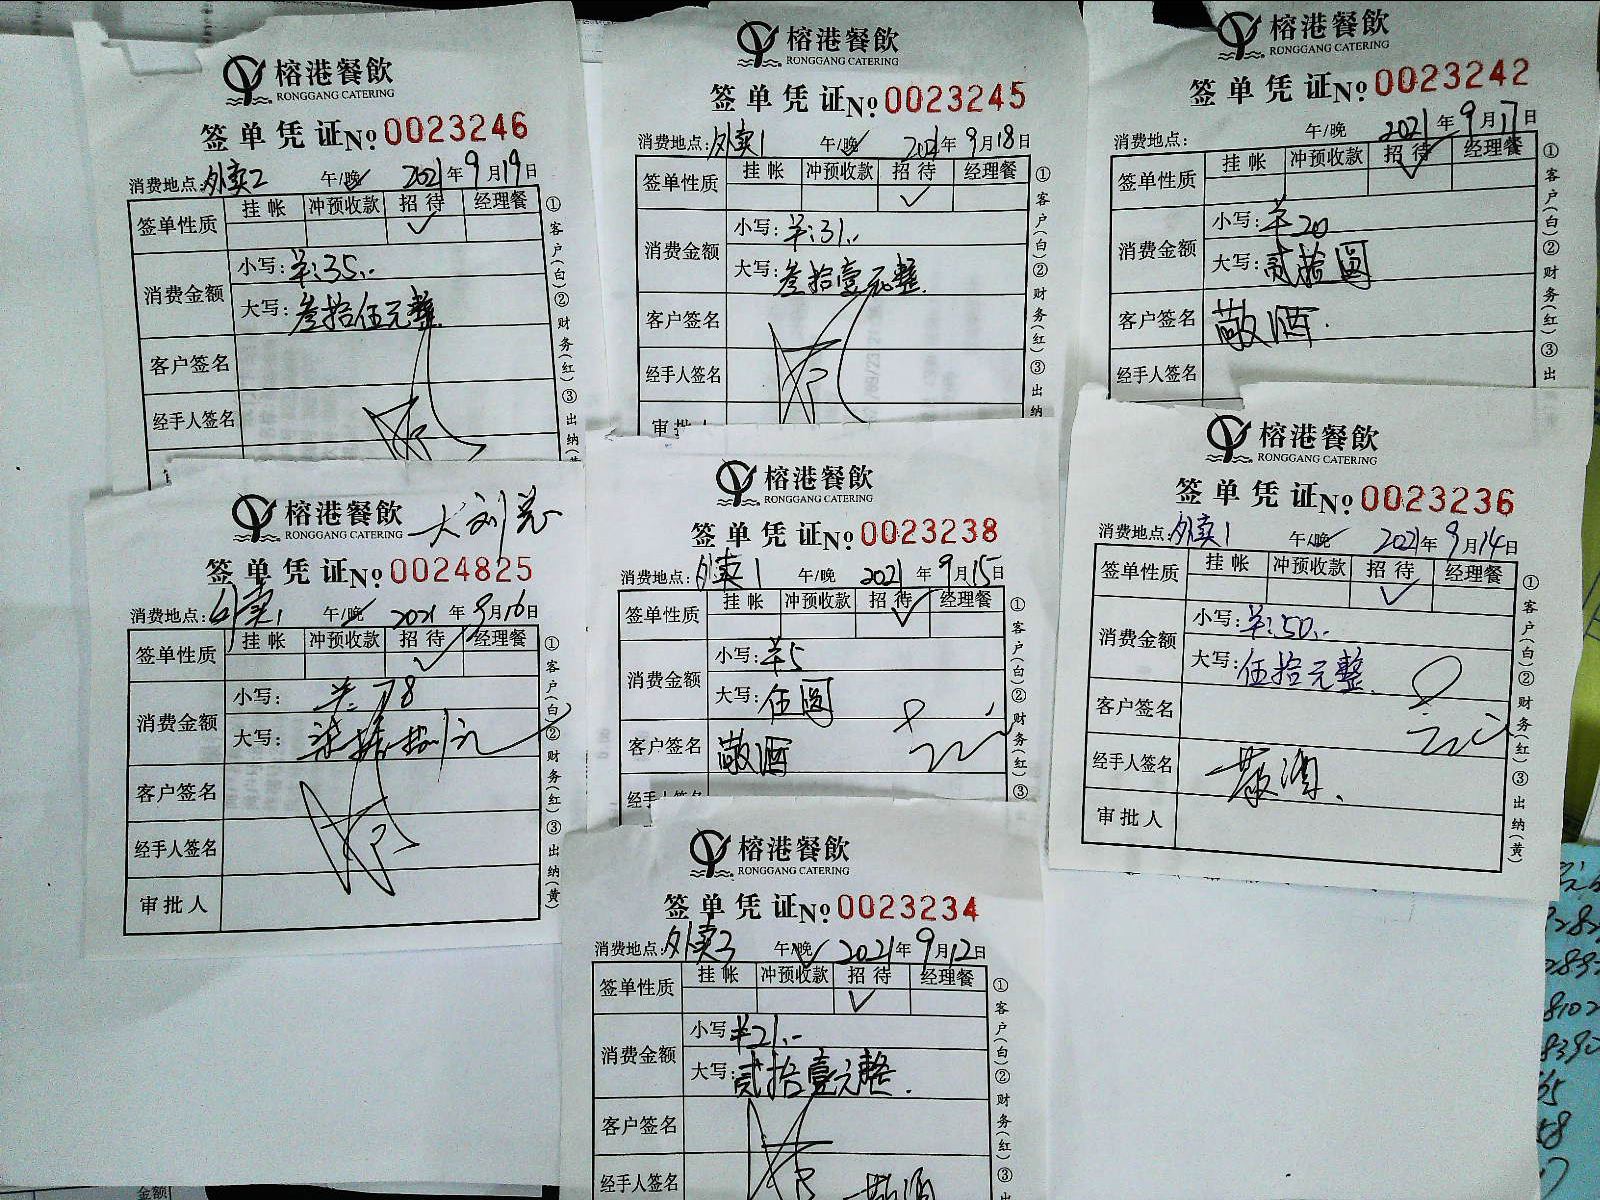 榕港餐飲
RONGGANG CATERING
签单凭证No.0023246
消费地点:外卖2 午/晚 2021年9月19日
签单性质 挂帐 冲预收款 招待 经理餐
消费金额 小写:羊:35..
大写:叁拾伍元整
客户签名
经手人签名
①客户(白)②财务(红)③出纳(黄
榕港餐飲
RONGGANG CATERING
签单凭证No.0023245
消费地点:外卖1 午/晚 2021年9月18日
签单性质 挂帐 冲预收款 招待 经理餐
消费金额 小写:羊:31..
大写:叁拾壹元整
客户签名
经手人签名
审批
①客户(白)②财务(红)③出纳
榕港餐飲
RONGGANG CATERING
签单凭证No.0023242
消费地点: 午/晚 2021年9月17日
签单性质 挂帐 冲预收款 招待 经理餐
消费金额 小写:羊20
大写:贰拾圆
客户签名
经手人签名
①客户(白)②财务(红)③出
榕港餐飲
RONGGANG CATERING
签单凭证No.0024825
消费地点:外卖1 午/晚 2021年9月16日
签单性质 挂帐 冲预收款 招待 经理餐
消费金额 小写:羊:78
大写:
客户签名
经手人签名
审批人
①客户(白)②财务(红)③出纳(黄)
榕港餐飲
RONGGANG CATERING
签单凭证No.0023238
消费地点:外卖1 午/晚 2021年9月15日
签单性质 挂帐 冲预收款 招待 经理餐
消费金额 小写:羊5
大写:伍圆
客户签名
经手人签名
①客户(白)②财务(红)③
榕港餐飲
RONGGANG CATERING
签单凭证No.0023236
消费地点:外卖1 午/晚 2021年9月14日
签单性质 挂帐 冲预收款 招待 经理餐
消费金额 小写:羊:50..
大写:伍拾元整
客户签名
经手人签名
审批人
①客户(白)②财务(红)③出纳(黄)
榕港餐飲
RONGGANG CATERING
签单凭证No.0023234
消费地点:外卖3 午/晚 2021年9月12日
签单性质 挂帐 冲预收款 招待 经理餐
消费金额 小写羊21.-
大写:贰拾壹元整
客户签名
经手人签名
①客户(白)②财务(红)③
金额